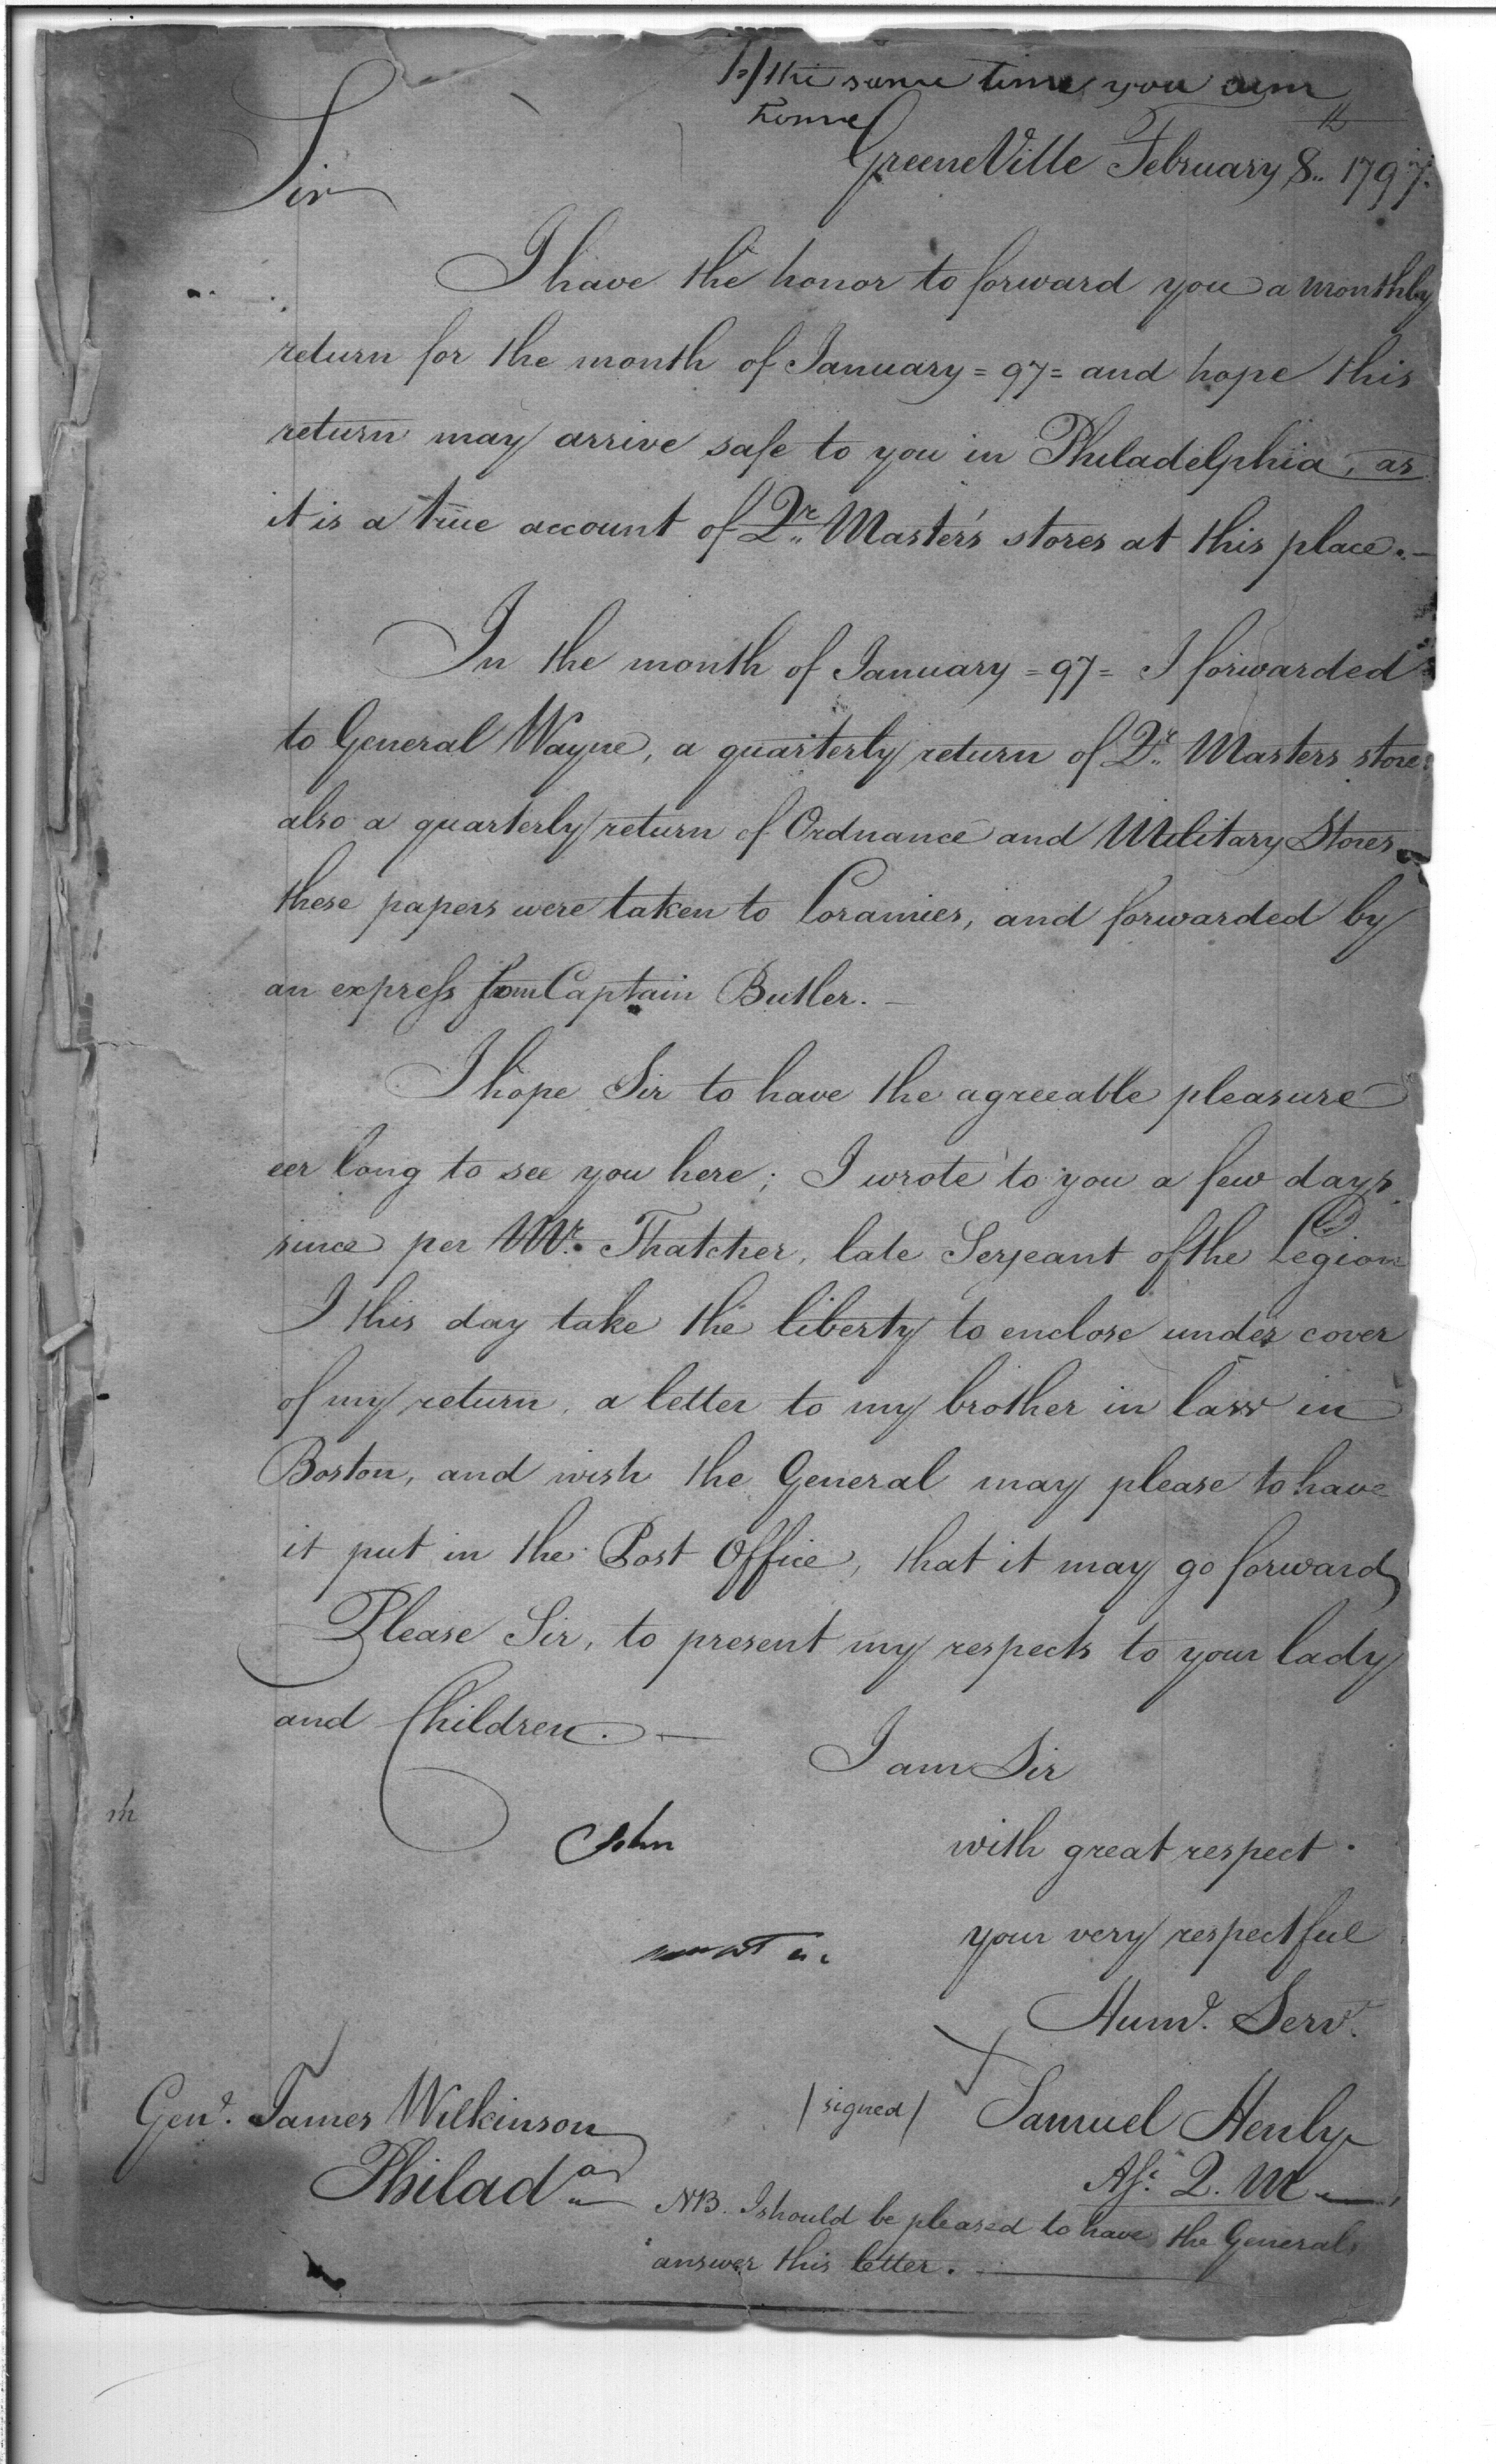 the same time you
home
GreeneVille February 8th 1797.
Sir
I have the honor to forward you a monthly
return for the month of January = 97 = and hope this
return may arrive safe to you in Philadelphia, as
it is a true account of Qr. Master's stores at this place. —
In the month of January = 97 = I forwarded
to General Wayne, a quarterly return of Qr. Masters stores
also a quarterly return of Ordnance and Military Stores
these papers were taken to Loramies, and forwarded by
an express from Captain Butler. —
I hope Sir to have the agreeable pleasure
eer long to see you here; I wrote to you a few days
since per Mr. Thatcher, late Serjeant of the Legion
I this day take the liberty to enclose under cover
of my return, a letter to my brother in law in
Boston, and wish the General may please to have
it put in the Post Office, that it may go forward
Please Sir, to present my respects to your lady
and Children. —
I am Sir
John
with great respect.
your very respectful
Humd. Servt.
Genl. James Wilkinson
/signed/ Samuel Henly
Philada
Ast. Q. M —
NB. I should be pleased to have the Generals
answer this letter. —